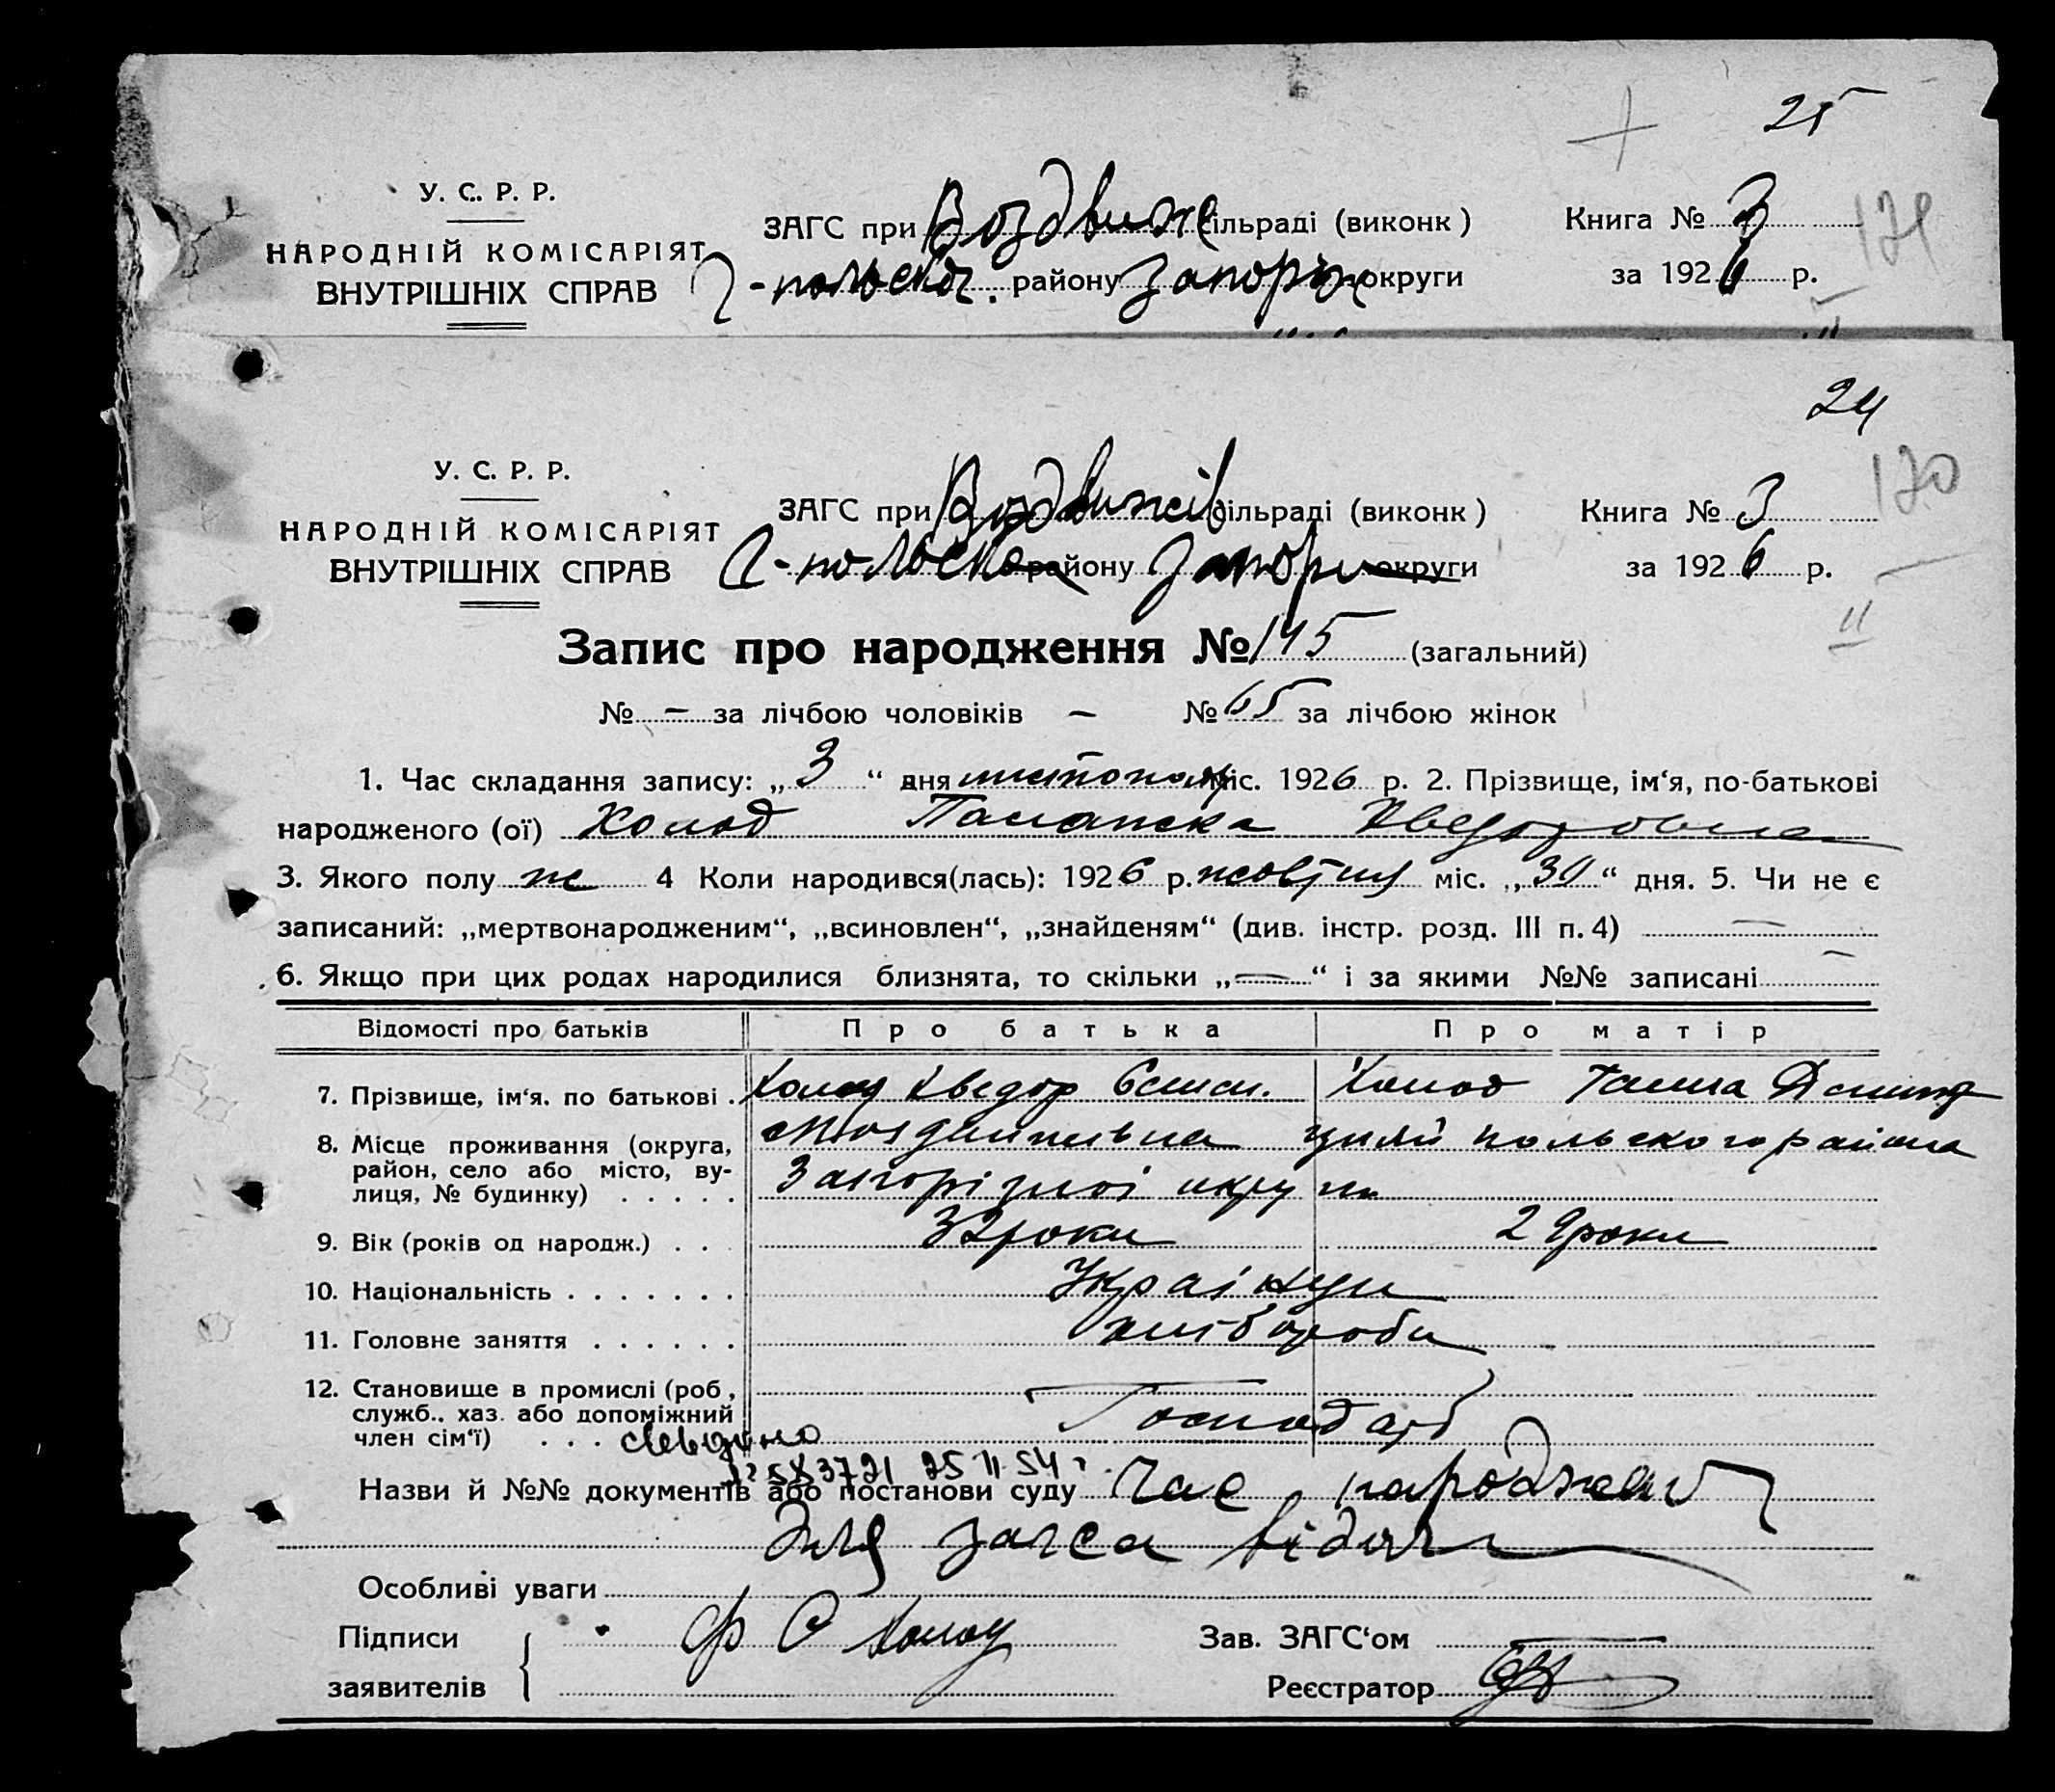 25
У. С. Р. Р.
НАРОДНІЙ КОМІСАРІЯТ
ВНУТРІШНІХ СПРАВ
ЗАГС при Воздвиж сільраді (виконк)
Г-польськ. району Запоріж округи
Книга № 3
за 1926 р.
24
170
У. С. Р. Р.
НАРОДНІЙ КОМІСАРІЯТ
ВНУТРІШНІХ СПРАВ
ЗАГС при Воздвижів сільраді (виконк)
Г-польськ району Запори округи
Книга № 3
за 1926 р.
Запис про народження № 145 (загальний)
№ – за лічбою чоловіків – № 65 за лічбою жінок
1. Час складання запису: „3“ дня листопаду міс. 1926 р. 2. Прізвище, ім‘я, по-батькові
народженого (ої) Холод Палажка Хведоровна
3. Якого полу ж 4 Коли народився(лась): 1926 р. жовтня міс. „30“ дня. 5. Чи не є
записаний: „мертвонародженим“, „всиновлен“, „знайденям“ (див. інстр. розд. III п. 4) —
6. Якщо при цих родах народилися близнята, то скільки „—“ і за якими №№ записані —
Відомості про батьків Про батька Про матір
7. Прізвище, ім‘я, по батькові . Холод Хведор Холод Ганна
8. Місце проживання (округа, польского района
район, село або місто, ву- Запорізької округи
лиця, № будинку) . . . . .
9. Вік (років од народж.) . . . 32 роки 29 роки
10. Національність . . . . . . . Українци
11. Головне заняття . . . . . . хлібороби
12. Становище в промислі (роб.,
служб., хаз. або допоміжний Господарь
член сім‘ї) . . .
25 11 54 г.
Назви й №№ документів або постанови суду час народження
для загса
Особливі уваги
Підписи Ф С Холод Зав. ЗАГС‘ом —
заявителів Реєстратор